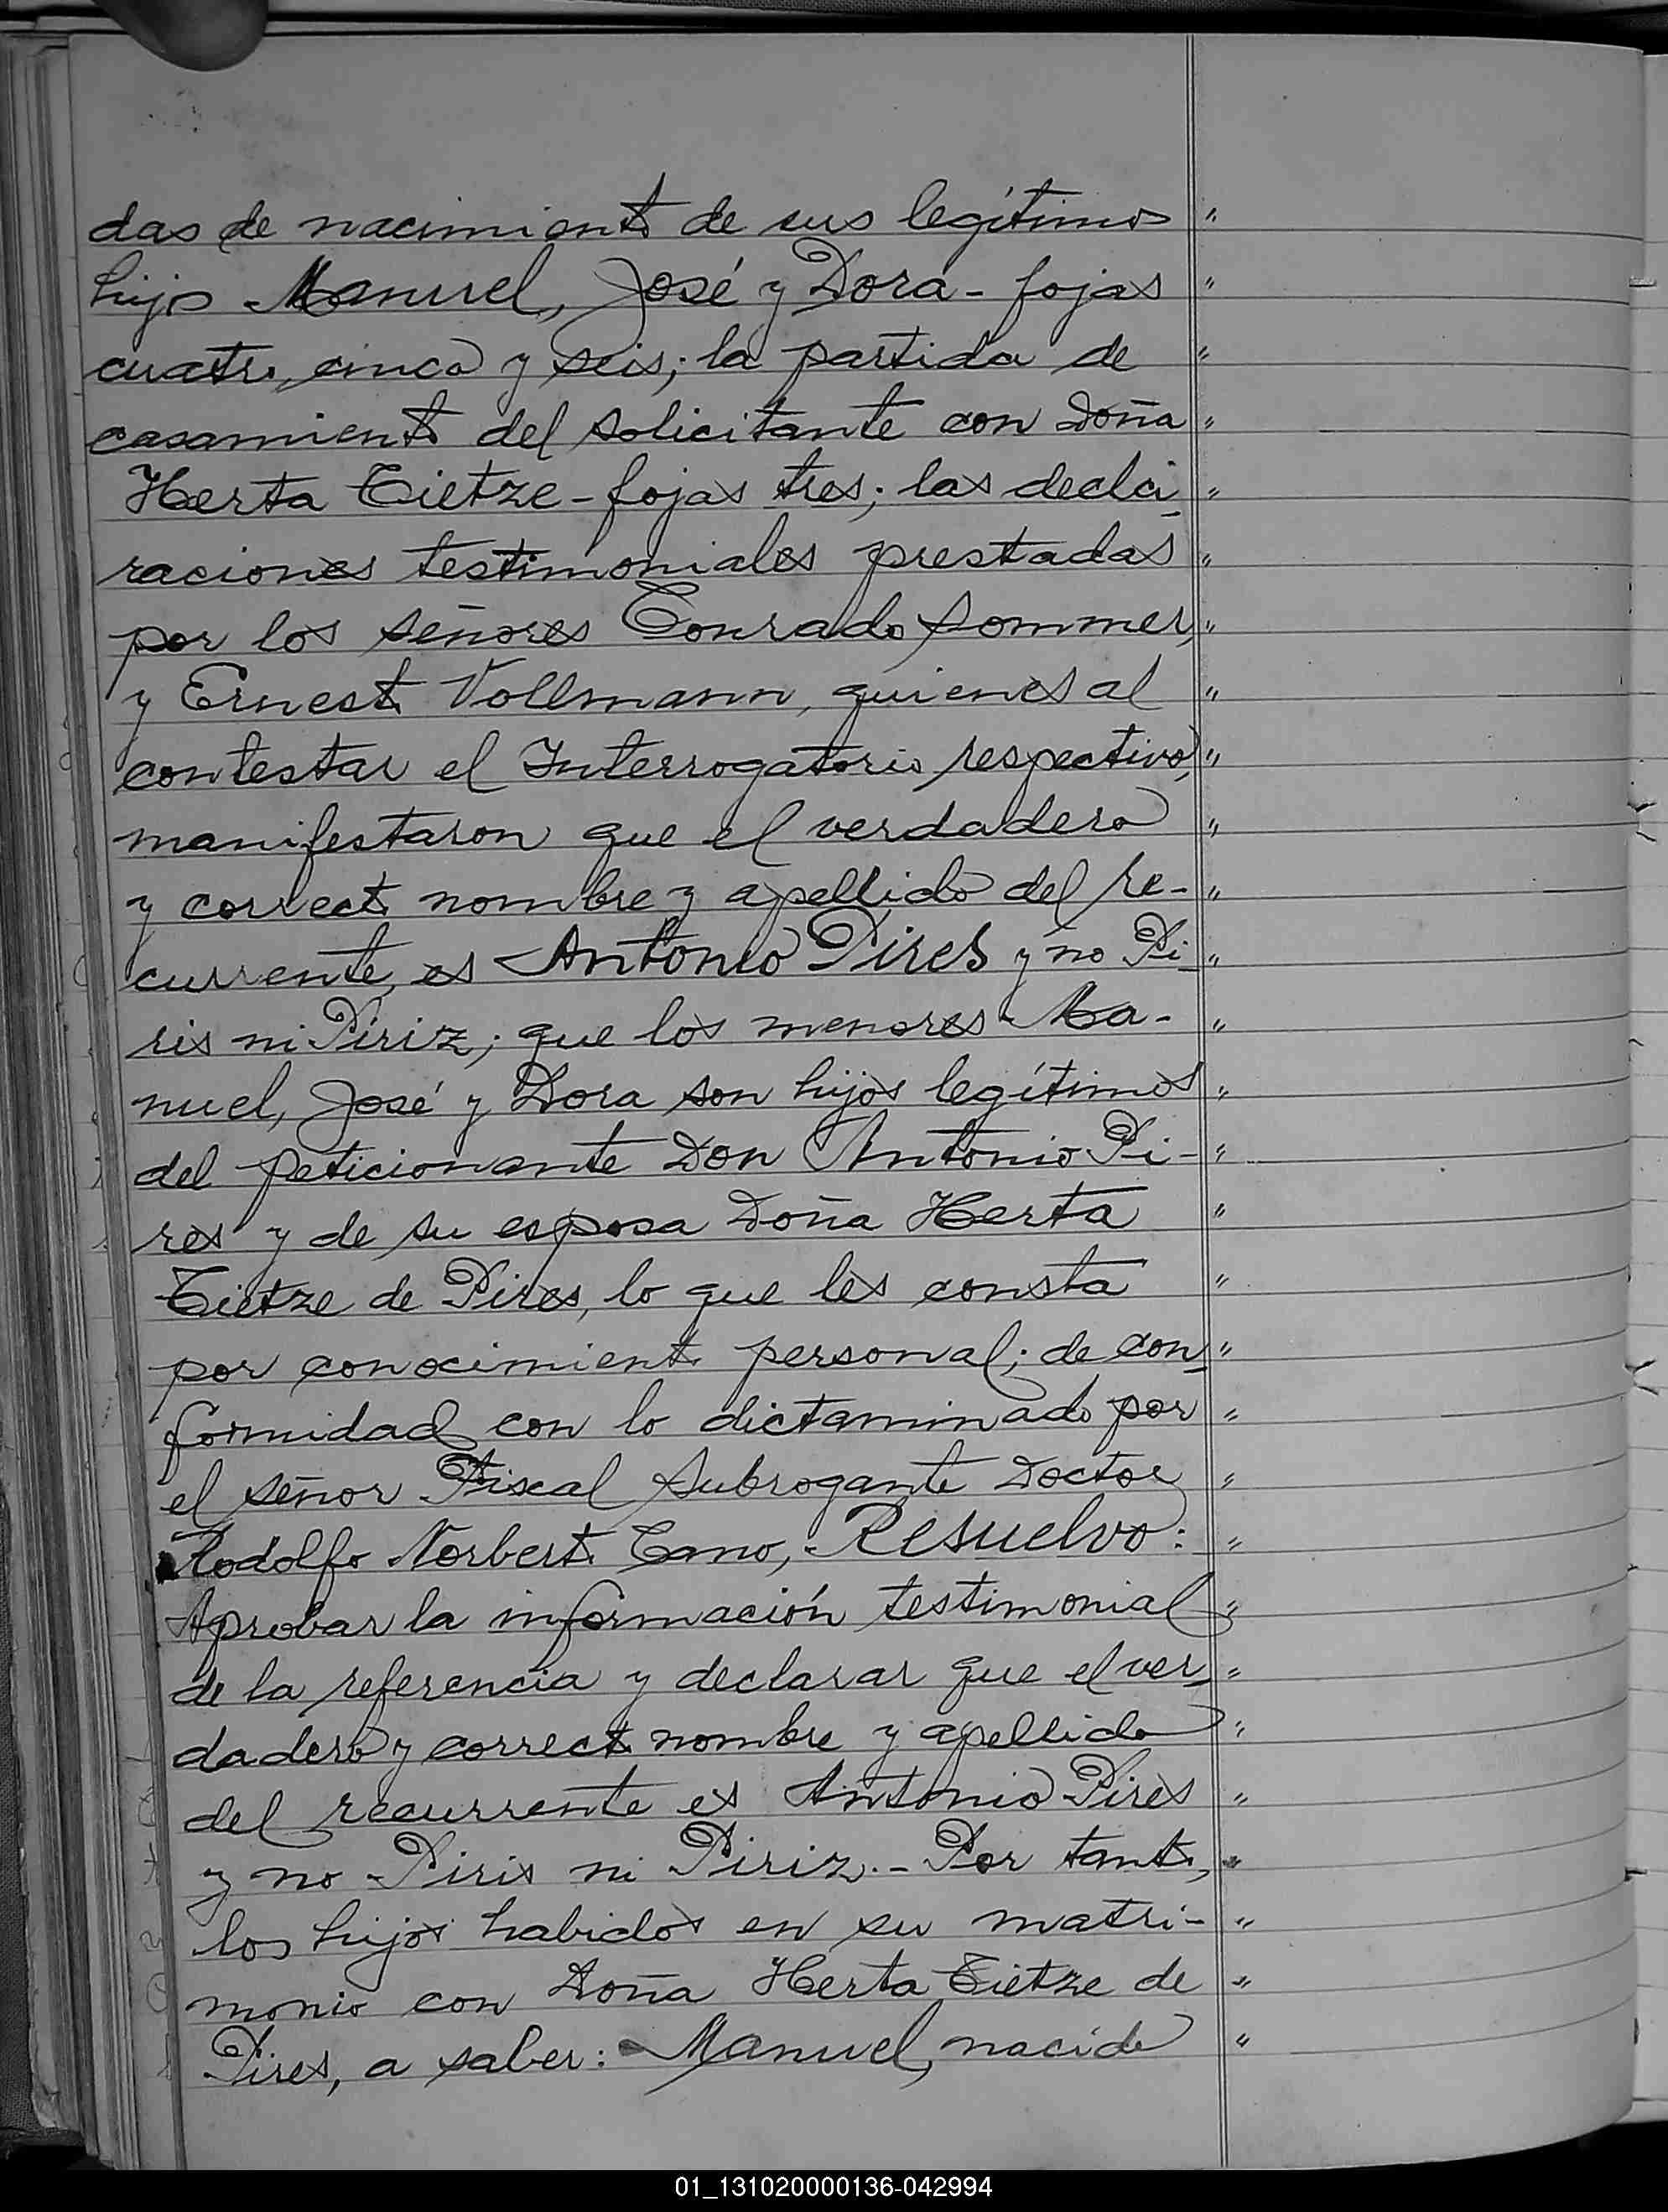 das de nacimiento de sus legítimos "
hijos Manuel, José y Dora - fojas "
cuatro, cinco y seis; la partida de "
casamiento del solicitante con Doña "
Herta Tietze - fojas tres; las decla- "
raciones testimoniales prestadas "
por los señores Conrado Sommer, "
y Ernesto Vollmann, quienes al "
contestar el Interrogatorio respectivo, "
manifestaron que el verdadero "
y correcto nombre y apellido del re- "
currente, es Antonio Pires y no Pi- "
ris ni Piriz; que los menores Ma- "
nuel, José y Dora son hijos legítimos "
del peticionante Don Antonio Pi- "
res y de su esposa Doña Herta "
Tietze de Pires, lo que les consta "
por conocimiento personal; de con- "
formidad con lo dictaminado por "
el señor Fiscal Subrogante Doctor "
Rodolfo Norberto Cano, Resuelvo: "
Aprobar la información testimonial "
de la referencia y declarar que el ver- "
dadero y correcto nombre y apellido "
del recurrente es Antonio Pires "
y no Piris ni Piriz.- Por tanto, "
los hijos habidos en su matri- "
monio con Doña Herta Tietze de "
Pires, a saber: Manuel, nacido "
01_131020000136-042994